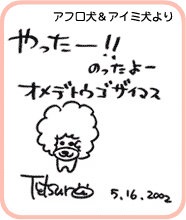 アフロ犬&アイミ犬より
やったー!!
のったよー
オメデトウゴザイマス
Tetsuro
5.16.2002